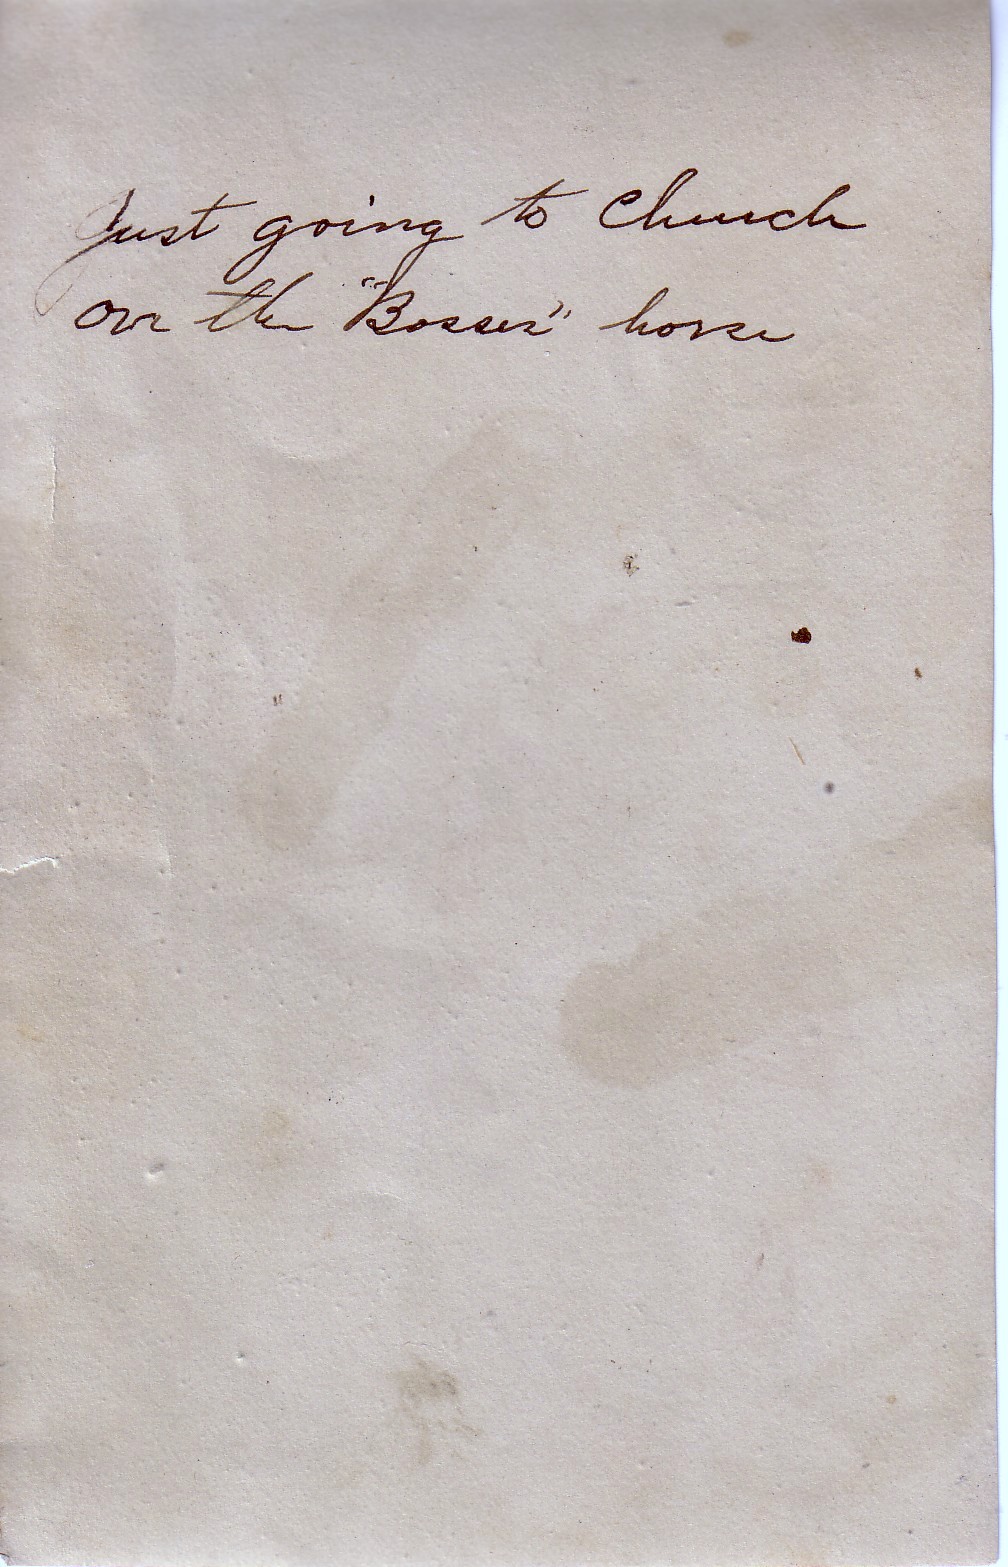 Just going to Church
on the "Bosses" horse